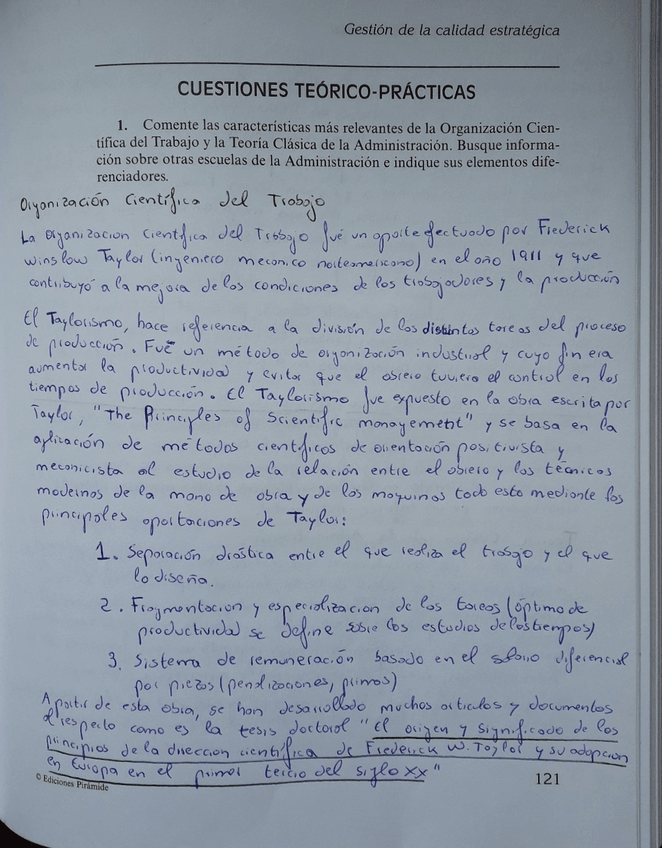 Gestión de la calidad estratégica
CUESTIONES TEÓRICO-PRÁCTICAS
1. Comente las características más relevantes de la Organización Cien-
tífica del Trabajo y la Teoría Clásica de la Administración. Busque informa-
ción sobre otras escuelas de la Administración e indique sus elementos dife-
renciadores.
Organización Científica del Trabajo
La Organizacion Cientifica del Trabajo fué un aporte efectuado por Frederick
Winslow Taylor (ingeniero mecanico norteamericano) en el año 1911 y que
contribuyó a la mejora de las condiciones de los trabajadores y la producción
El Taylorismo, hace referencia a la división de las distintas tareas del proceso
de producción. Fué un método de organización industrial y cuyo fin era
aumentar la productividad y evitar que el obrero tuviera el control en los
tiempos de producción. El Taylorismo fue expuesto en la obra escrita por
Taylor, "The Principles of Scientific management" y se basa en la
aplicación de métodos científicos de orientación positivista y
mecanicista al estudio de la relación entre el obrero y las técnicas
modernas de la mano de obra y de las maquinas todo esto mediante las
principales aportaciones de Taylor:
1. Separación drástica entre el que realiza el trasgo y el que
lo diseña.
2. Fragmentacion y especializacion de las tareas (óptimo de
productividad se define sobre los estudios de los tiempos)
3. Sistema de remuneración basado en el salario diferencial
por piezas (penalizaciones, primas)
A partir de esta obra, se han desarrollado muchos articulos y documentos
al respecto como es la tesis doctoral "el origen y significado de los
principios de la direccion científica de Frederick W. Taylor y su adopcion
en Europa en el primer tercio del siglo XX"
© Ediciones Pirámide
121